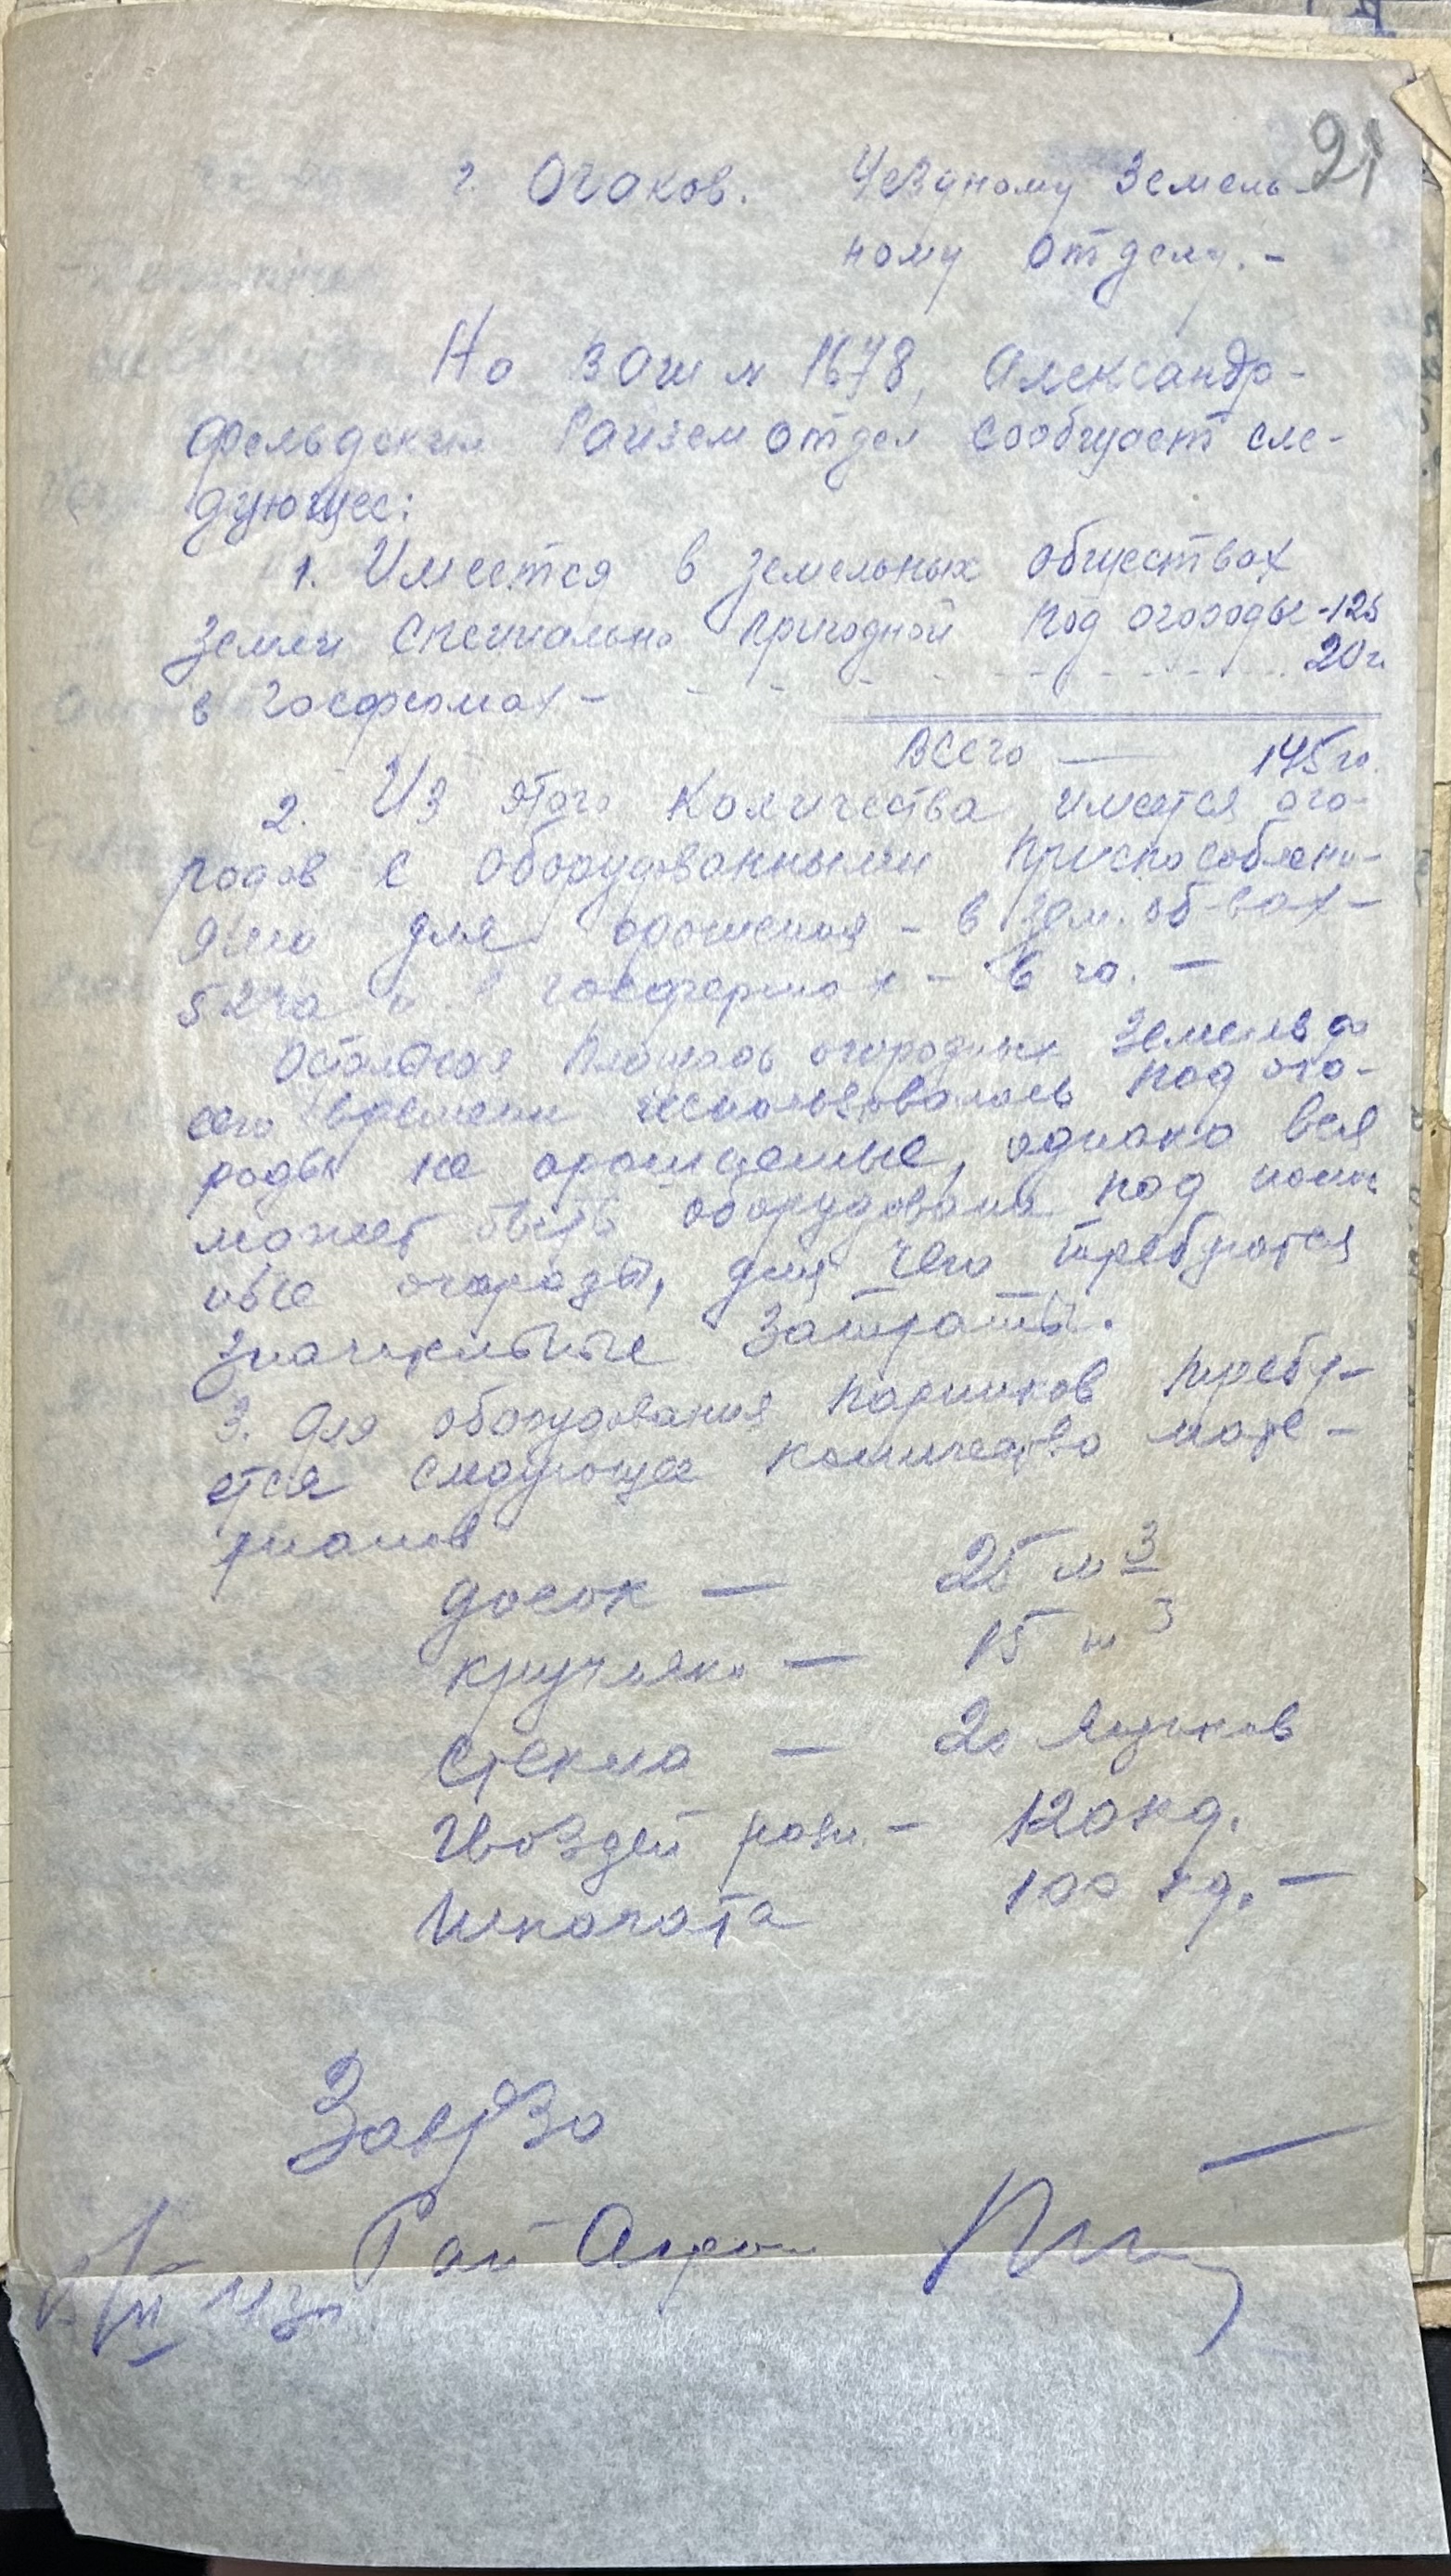 21
г. Очаков. Уездному Земель-
ному отделу. -
На Ваш № 1678, Александр-
фельдский Райземотдел сообщает сле-
дующее:
1. Имеется в земельных обществах
земли специально пригодной под огороды - 125
в госфермах - - - - - 20 г.
Всего — 145 га.
2. Из этого количества имеется ого-
родов с оборудованными приспособлени-
ями для орошения - в зем. об-вах -
52 га и в госфермах - 6 га. -
Остальная площадь огородных земель до
сего времени использовалась под ого-
роды не орошаемые, однако вся
может быть оборудована под
огороды, для чего требуются
значительные затраты.
3. Для оборудования парников требу-
ется следующее количество мате-
риалов
досок — 25 м3
кругляка — 15 м3
Стекла — 20 ящиков
Гвоздей разн. - 120 кг.
Шпагата 100 кг. -
Рай Агроном